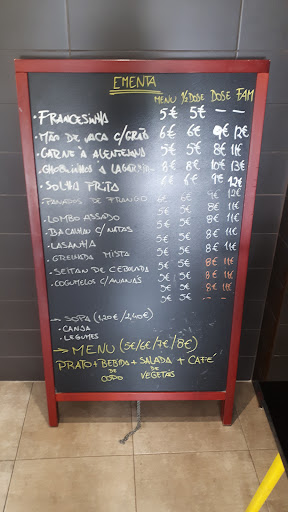 EMENTA
MENU ½ DOSE DOSE FAM
• FRANCESINHA 5€ 5€ — —
• MÃO DE VACA C/GRÃO 6€ 6€ 9€ 12€
• CARNE À ALENTEJANA 5€ 5€ 8€ 11€
• CHOQUINHOS À LAGAREIRO 8€ 8€ 10€ 13€
• SOLHA FRITA 6€ 6€ 9€ 12€
• PANADOS DE FRANGO 6€ 6€ 9€ 12€
• LOMBO ASSADO 5€ 5€ 8€ 11€
• BACALHAU C/NATAS 5€ 5€ 8€ 11€
• LASANHA 5€ 5€ 8€ 11€
• GRELHADA MISTA 5€ 5€ 8€ 11€
• SEITAN DE CEBOLADA 5€ 5€ 8€ 11€
• COGUMELOS C/ANANÁS 5€ 5€ 8€ 11€
5€ 5€ — —
→ SOPA (1,20€/2,40€)
• CANJA
• LEGUMES
→ MENU (5€/6€/7€/8€)
PRATO + BEBIDA + SALADA + CAFÉ
DE DE
COPO VEGETAIS